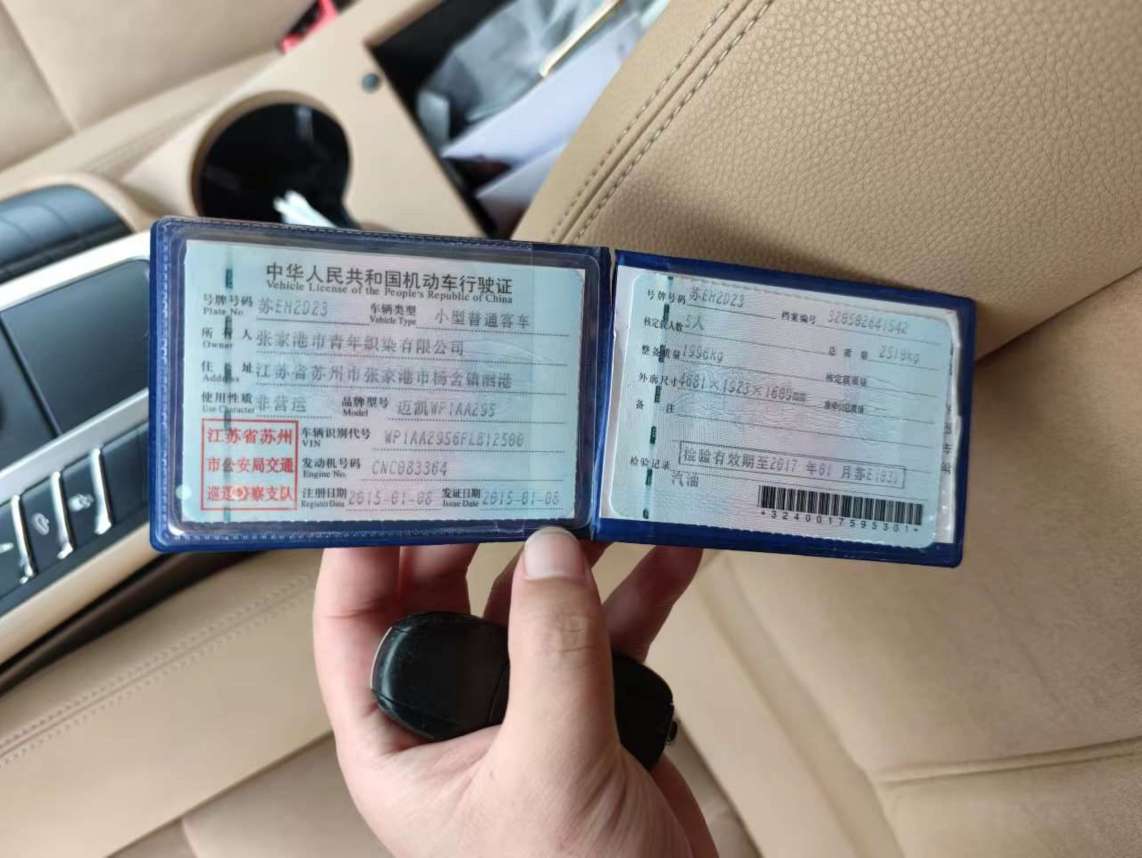 中华人民共和国机动车行驶证
Vehicle License of the People's Republic of China
号牌号码 苏EH2D23 车辆类型 小型普通客车
Plate No. Vehicle Type
所有人 张家港市青年织染有限公司
Owner
住址 江苏省苏州市张家港市杨舍镇丽港
Address
使用性质 非营运 品牌型号 迈凯WP1AA295
Use Character Model
江苏省苏州
市公安局交通
巡逻警察支队
车辆识别代号 WP1AA2956FLB12500
VIN
发动机号码 CNC083364
Engine No.
注册日期 2015-01-08 发证日期 2015-01-08
Register Date Issue Date
号牌号码 苏EH2D23 档案编号 320582641542
核定载人数 5人
整备质量 1996kg 总质量
外廓尺寸 4681×1923×1605mm
备注
检验记录 检验有效期至2017年01月苏E
汽油
*3240017595301*